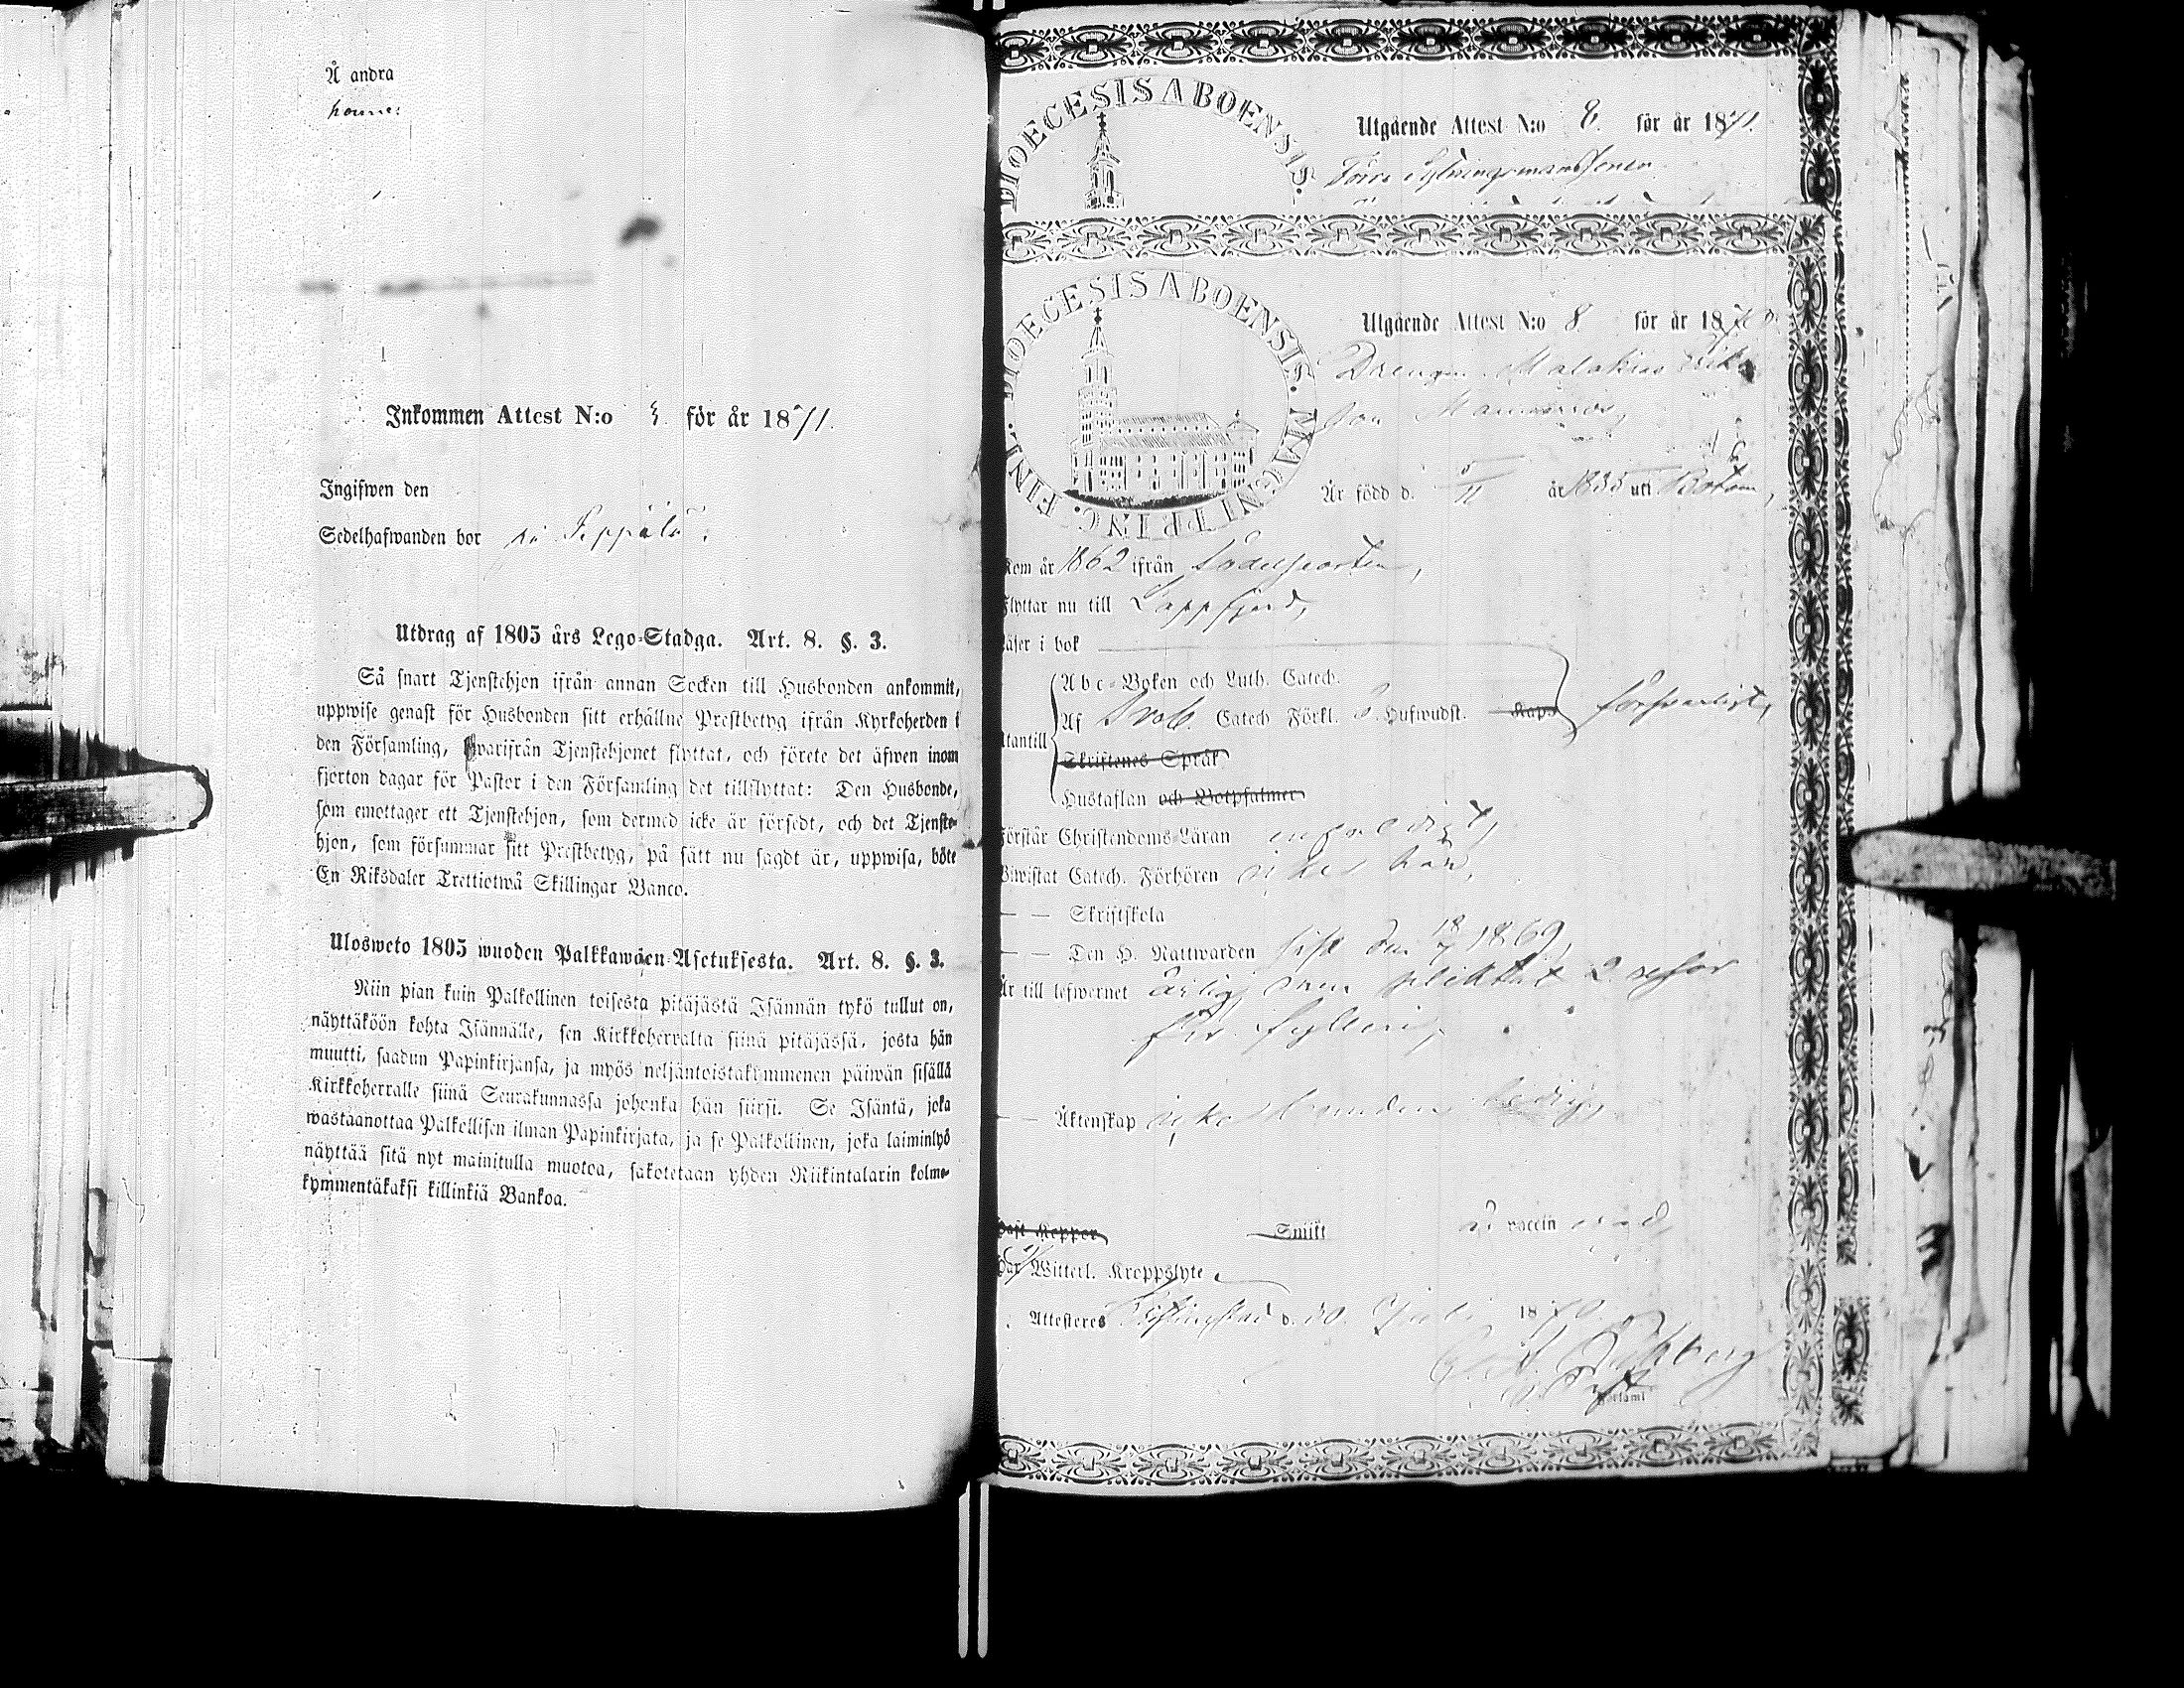 Å andra
Inkommen Attest N:o för år 1871.
Ingifwen den
Sedelhafwanden bor på Peppälä.
Utdrag af 1805 års Lego-Stadga. Art. 8. §. 3.
Så snart Tjenstehjon ifrån annan Socken till Husbonden ankommit,
uppwise genast för Husbonden sitt erhållne Prestbetyg ifrån Kyrkoherden i
den Församling, hwarifrån Tjenstehjonet flyttat, och förete det äfwen inom
fjorton dagar för Pastor i den Församling det tillflyttat: Den Husbonde,
som emottager ett Tjenstehjon, som dermed icke är försedt, och det Tjenste-
hjon, som försummar sitt Prestbetyg, på sätt nu sagdt är, uppwisa, böte
En Riksdaler Trettiotwå Skillingar Banco.
Ulosweto 1805 wuoden Palkkawäen-Asetuksesta. Art. 8. §. 3.
Niin pian kuin Palkollinen toisesta pitäjästä Isännän tykö tullut on,
näyttäköön kohta Isännälle, sen Kirkkoherralta siinä pitäjässä, josta hän
muutti, saadun Papinkirjansa, ja myös neljäntoistakymmenen päiwän sisällä
Kirkkoherralle siinä Seurakunnassa johonka hän siirsi. Se Isäntä, joka
wastaanottaa Palkollisen ilman Papinkirjata, ja se Palkollinen, joka laiminlyö
näyttää sitä nyt mainitulla muotoa, sakotetaan yhden Riikintalarin kolme-
kymmentäkaksi killinkiä Bankoa.
DIOECESIS ABOENSIS.
Utgående Attest N:o 8. för år 1871.
Förre Nybningsmanssonen
DIOECESIS ABOENSIS. MAGNI PRINC. FINL.
Utgående Attest N:o 8 för år 1870.
Drengen Malakias Eriks
son
Är född d. 5/11 år 1835 uti Bötom,
Kom år 1862 ifrån Sadelsporten,
Flyttar nu till Lappfjerd,
Läser i bok
Abc-Boken och Luth. Catech.
Af Sveb. Catech Förkl. 3. Hufwudst. Kap. försvarligt,
Utantill
Skriftenes Språk
Hustaflan och Botpsalmer
Förstår Christendoms-Läran enfaldigt,
Biwistat Catech. Förhören
— — Skriftskola
— — Den H. Nattwarden sist den 18/7 1869,
Är till lefwernet ärlig, men pliktat 2 resor
för fylleri,
— — Äktenskap icke bunden, ledig,
Haft Koppor Smitt är vaccinerad,
Har Witterl. Kroppslyte
Attesteres Christinestad d. 30. Juli 1870.